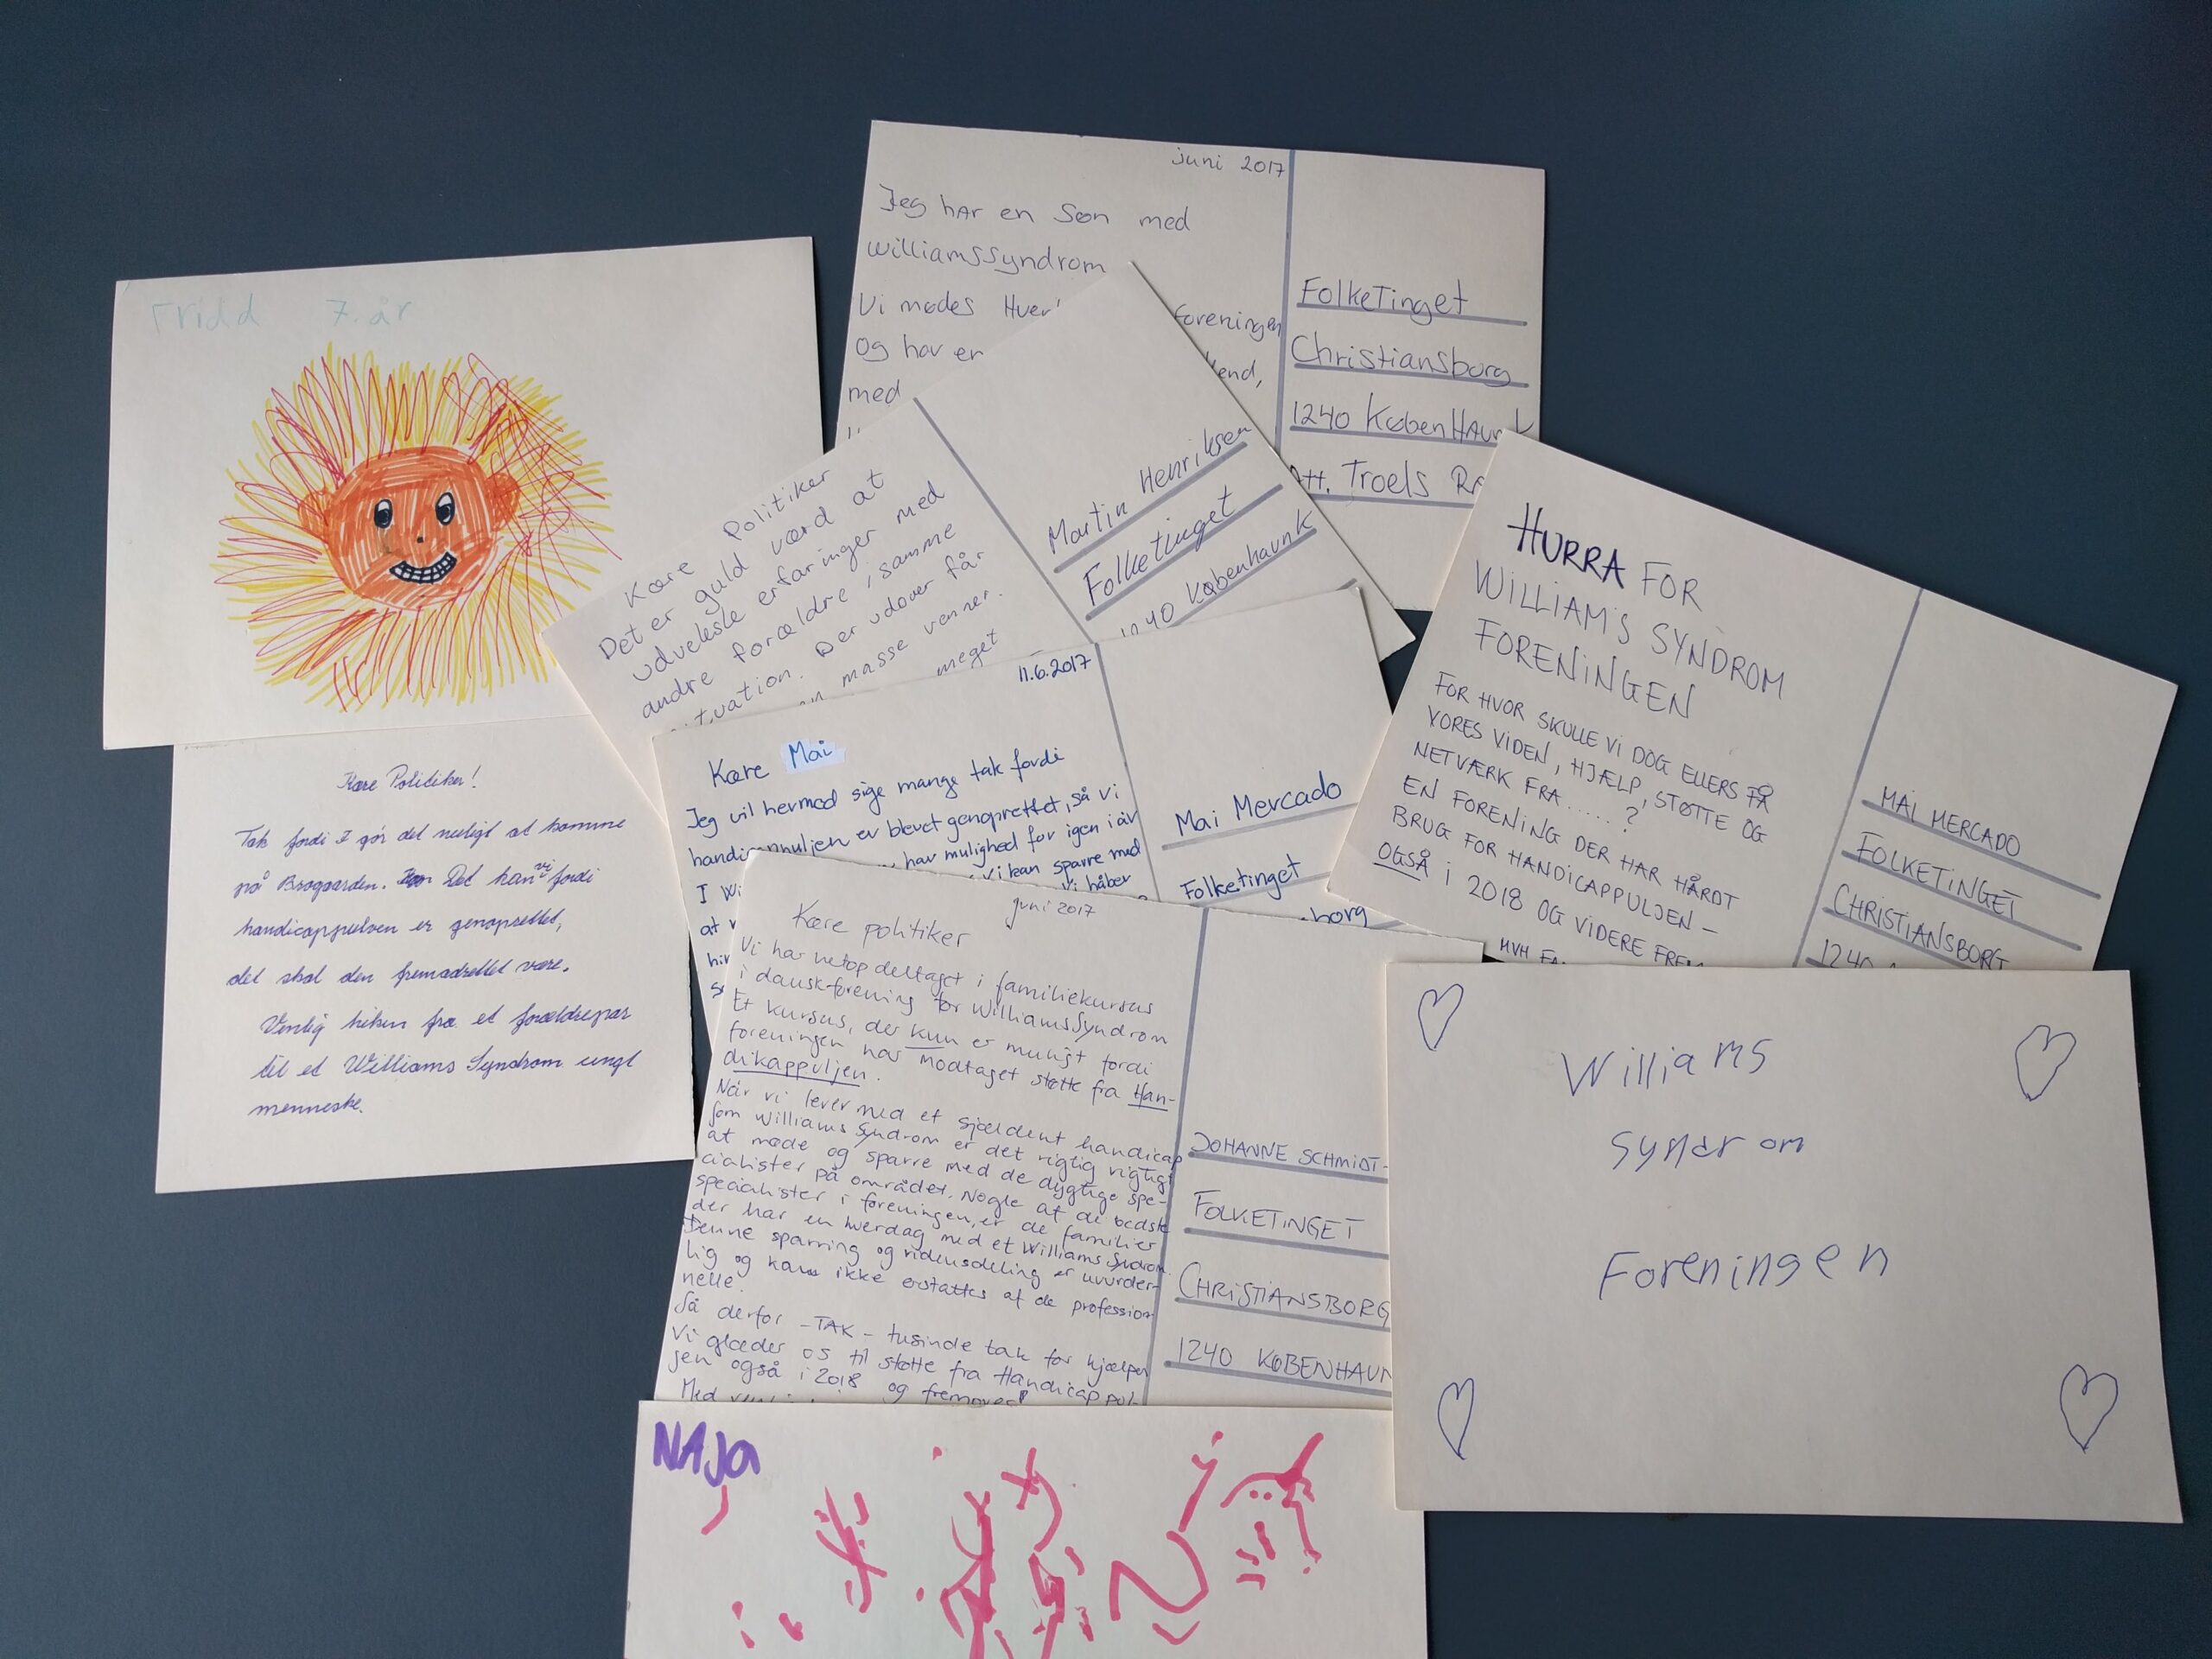 7. år
juni 2017
Jeg har en Søn med
williamssyndrom
Vi mødes Hver
foreningen
og har en
med
FolkeTinget
Christiansborg
1240 København K
Att. Troels
Kære Politiker
Det er guld værd at
udveksle erfaringer med
andre forældre, samme
situation. Der udover får
en masse venner.
meget
Martin Henriksen
Folketinget
1240 København K
HURRA FOR
WILLIAM'S SYNDROM
FORENINGEN
FOR HVOR SKULLE VI DOG ELLERS FÅ
VORES VIDEN, HJÆLP, STØTTE OG
NETVÆRK FRA.....?
EN FORENING DER HAR HÅRDT
BRUG FOR HANDICAPPULJEN –
OGSÅ I 2018 OG VIDERE FREM
MVH
MAI MERCADO
FOLKETINGET
CHRISTIANSBORG
1240
Kære Politiker!
Tak fordi I gør det muligt at komme
på Brogaarden. Det kan vi fordi
handicappuljen er genoprettet,
det skal den fremadrettet være.
Venlig hilsen fra et forældrepar
til et Williams Syndrom ungt
menneske.
11.6.2017
Kære Mai
Jeg vil hermed sige mange tak fordi
handicappuljen er blevet genoprettet, så vi
har mulighed for igen i år
I
vi kan sparre med
vi håber
at
Mai Mercado
Folketinget
borg
juni 2017
Kære politiker
Vi har netop deltaget i familiekursus
i dansk forening for Williams Syndrom
Et kursus, der kun er muligt fordi
foreningen har modtaget støtte fra Han-
dikappuljen.
Når vi lever med et sjældent handicap
som Williams Syndrom er det rigtig vigtigt
at møde og sparre med de dygtige spe-
cialister på området. Nogle af de bedste
specialister i foreningen, er de familier
der har en hverdag med et Williams Syndrom.
Denne sparring og vidensdeling er uvurder-
lig og kan ikke erstattes af de profession-
nelle.
Så derfor – TAK – tusinde tak for hjælpen
Vi glæder os til støtte fra Handicappul-
jen også i 2018 og fremover!
Med
JOHANNE SCHMIDT-
FOLKETINGET
CHRISTIANSBORG
1240 KØBENHAVN
Williams
Syndrom
Foreningen
NAJA